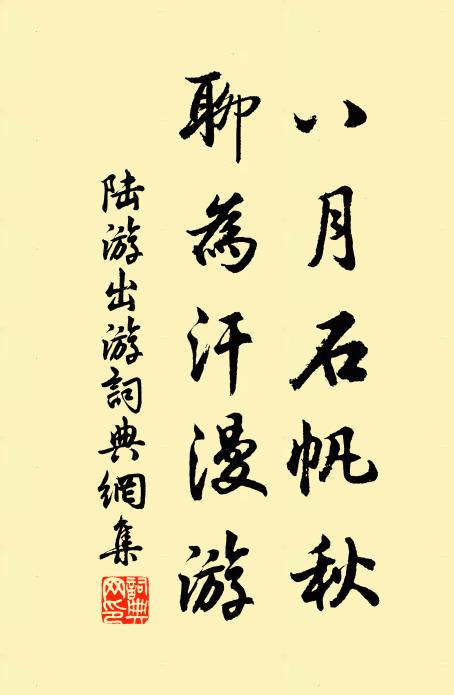 八月石帆秋
聊為汗漫游
陸游出游詞典網集
詞典网印